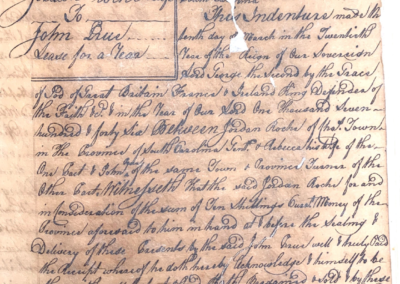 To
John Rue
Lease for a Year
This Indenture made the
tenth day of March in the Twentieth
Year of the Reign of our Sovereign
Lord George the Second by the Grace
of God of Great Britain France & Ireland King Defender of
the Faith &c & in the Year of Our Lord One Thousand Seven
hundred & forty Six Between Jordan Roche of Town
in The Province of South Carolina Gent. & Rebecca his Wife of the
One Part & John of the same Town & Province Turner of the
Other Part Witnesseth that the said Jordan Roche for and
in Consideration of the sum of Ten Shillings Curr. Money of the
Province aforesaid to him in hand at & before the Sealing &
Delivery of these Presents by the said John well & truly Paid
the Receipt whereof he doth hereby Acknowledge & himself to be